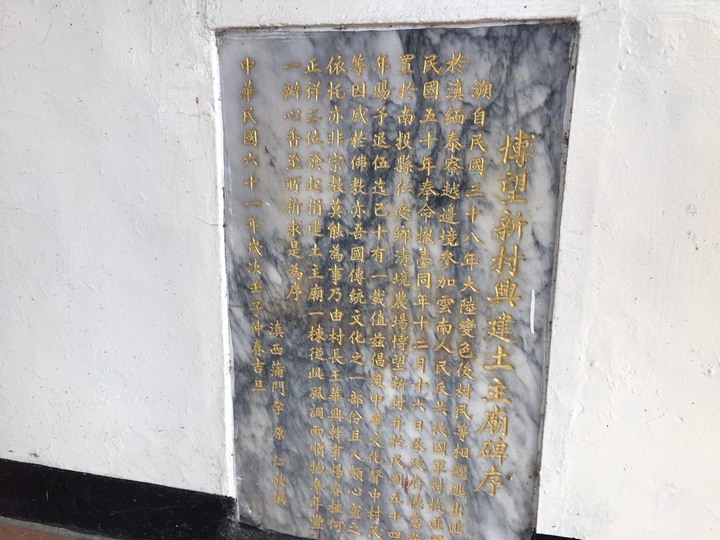 博望新村興建土主廟碑序
溯自民國三十八年大陸變色後村民等相繼逃出
於滇緬泰寮越邊境參加雲南人民反共救國軍對抗匪
民國五十年奉命撤臺同年十二月十六日承政府德意安
置於南投縣仁愛鄉清境農場博望新村并於民國五十四
年賜予退伍迄已十有一載值茲倡復中華文化聲中村民
等因感於佛教亦吾國傳統文化之一部份且人類心靈之
依托亦非宗教莫能為事乃由村長王華興韓有楊春能何
正祥位發起捐建土主廟一棟從此風調雨順物阜年豐
一瓣心香至祈求是為序
滇西蒲門李原仁敬撰
中華民國六十一年歲次壬子仲春吉旦